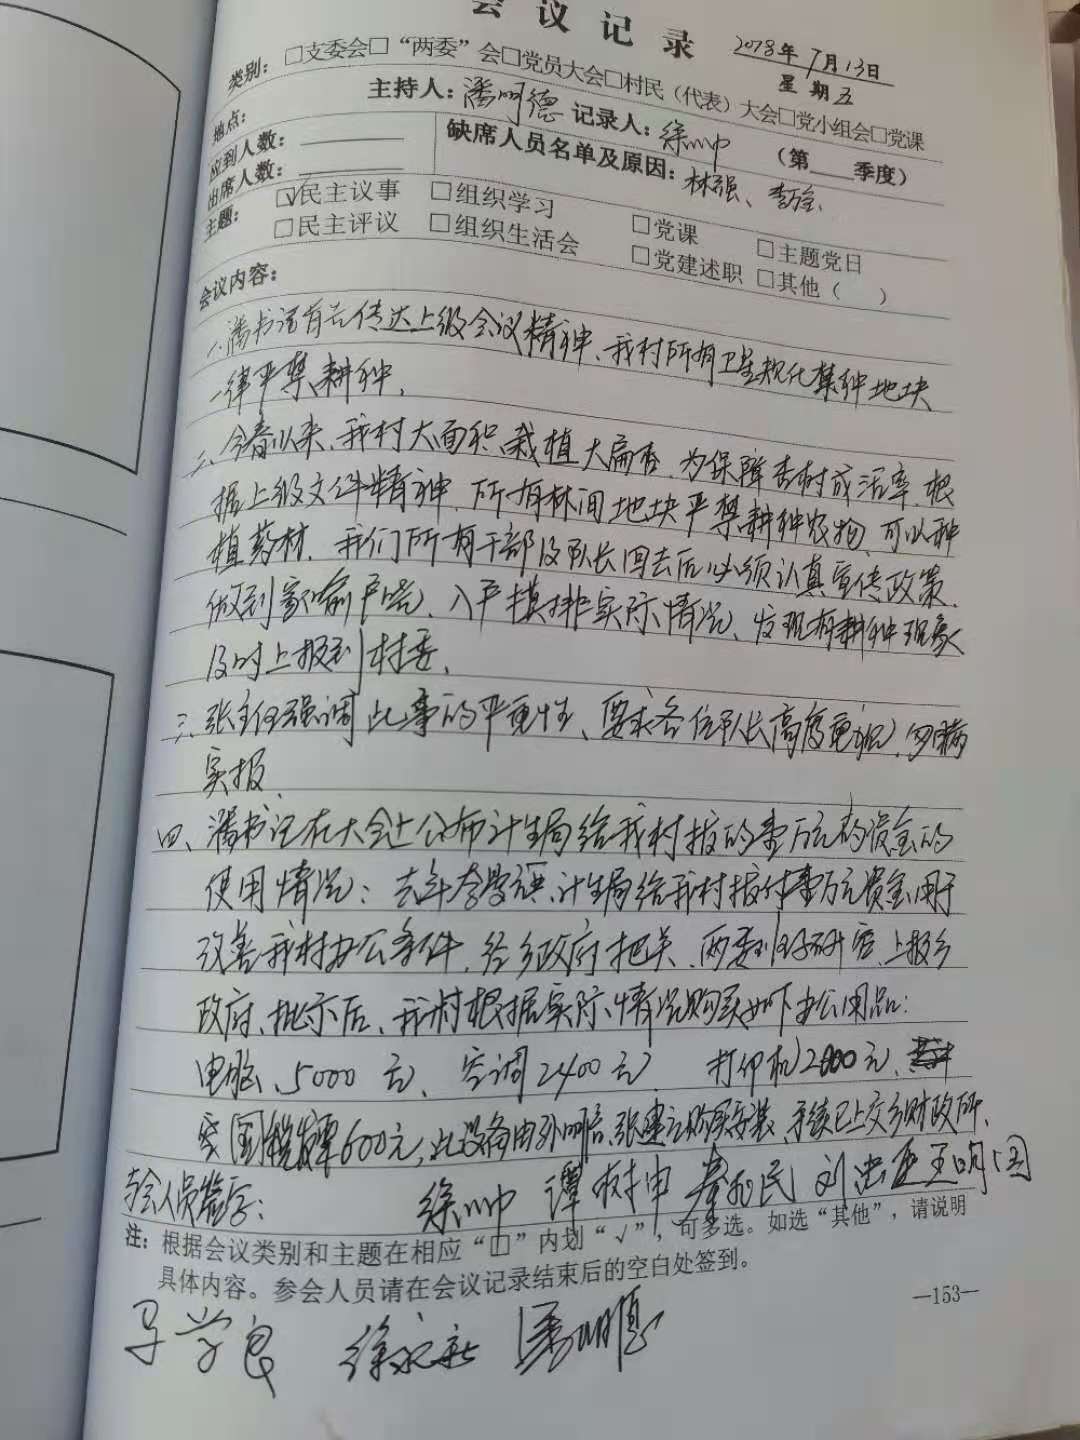 会议记录
2018年7月13日
星期五
类别：□支委会□“两委”会□党员大会□村民（代表）大会□党小组会□党课
主持人：潘明德 记录人：徐
（第 季度）
地点：
应到人数：
缺席人员名单及原因：林强、李
出席人数：
主题：
☑民主议事 □组织学习 □党课 □主题党日
□民主评议 □组织生活会 □党建述职 □其他（ ）
会议内容：
一、潘书记首先传达上级会议精神、我村所有卫星地块
一律严禁耕种、
二、今春以来、我村大面积栽植大扁杏、为保障杏树成活率、根
据上级文件精神、所有林间地块严禁耕种农物、可以种
植药材、我们所有干部及队长回去后必须认真宣传政策、
做到家喻户晓、入户摸排实际情况、发现有耕种现象
及时上报到村委、
三、张主任强调此事的严重性、要求各位队长高度重视、
实报、
四、潘书记在大会上公布计生局给我村拨的壹万元的资金的
使用情况：去年、计生局给我村拨付壹万元资金、用于
改善我村办公条件、经乡政府把关、两委研究、上报乡
政府、批示后、我村根据实际情况购买如下办公用品：
电脑、5000元、空调2400元、打印机2000元、
国税发票600元，此设备由孙明信、张建立购买安装、手续已上交乡财政所、
与会人员签字：
谭树申 秦民 刘忠 王明国
注：根据会议类别和主题在相应“□”内划“√”，可多选。如选“其他”，请说明
具体内容。参会人员请在会议记录结束后的空白处签到。
—153—
学良 徐永新 潘明德